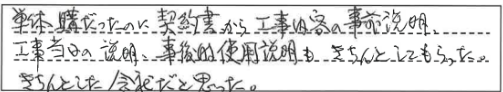 単体購だったのに契約書から工事内容の事前説明、
工事当日の説明、事後的使用説明も、きちんとしてもらった。
きちんとした会社だと思った。